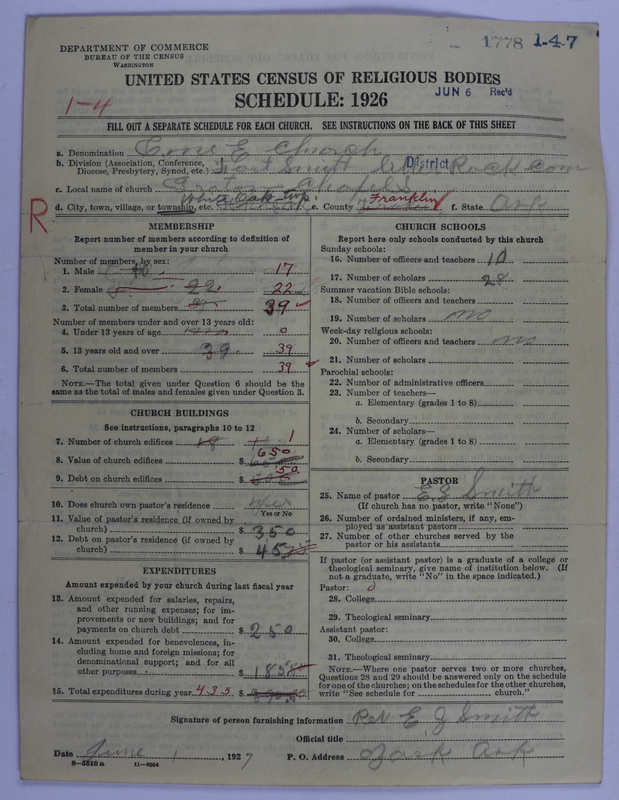 1778 1-4-7
DEPARTMENT OF COMMERCE
BUREAU OF THE CENSUS
WASHINGTON
UNITED STATES CENSUS OF RELIGIOUS BODIES
JUN 6 Rec'd
1-4
SCHEDULE: 1926
FILL OUT A SEPARATE SCHEDULE FOR EACH CHURCH. SEE INSTRUCTIONS ON THE BACK OF THIS SHEET
a. Denomination E Church
b. Division (Association, Conference, Diocese, Presbytery, Synod, etc.) Fort Smith District Rock con
c. Local name of church Chapel
R
d. City, town, village, or township, etc. White Oak twp e. County Franklin f. State Ark
MEMBERSHIP
Report number of members according to definition of member in your church
Number of members, by sex:
1. Male 17
2. Female 22 22
3. Total number of members 39
Number of members under and over 13 years old:
4. Under 13 years of age 0
5. 13 years old and over 39 39
6. Total number of members 39
NOTE.—The total given under Question 6 should be the same as the total of males and females given under Question 3.
CHURCH BUILDINGS
See instructions, paragraphs 10 to 12
7. Number of church edifices 1
8. Value of church edifices $ 650
9. Debt on church edifices $ 50
10. Does church own pastor's residence
Yes or No
11. Value of pastor's residence (if owned by church) $ 350
12. Debt on pastor's residence (if owned by church) $ 45
EXPENDITURES
Amount expended by your church during last fiscal year
13. Amount expended for salaries, repairs, and other running expenses; for improvements or new buildings; and for payments on church debt $ 250
14. Amount expended for benevolences, including home and foreign missions; for denominational support; and for all other purposes $ 185
15. Total expenditures during year 435 $
CHURCH SCHOOLS
Report here only schools conducted by this church
Sunday schools:
16. Number of officers and teachers 10
17. Number of scholars 28
Summer vacation Bible schools:
18. Number of officers and teachers
19. Number of scholars no
Week-day religious schools:
20. Number of officers and teachers no
21. Number of scholars
Parochial schools:
22. Number of administrative officers
23. Number of teachers—
a. Elementary (grades 1 to 8)
b. Secondary
24. Number of scholars—
a. Elementary (grades 1 to 8)
b. Secondary
PASTOR
25. Name of pastor E J Smith
(If church has no pastor, write "None")
26. Number of ordained ministers, if any, employed as assistant pastors
27. Number of other churches served by the pastor or his assistants
If pastor (or assistant pastor) is a graduate of a college or theological seminary, give name of institution below. (If not a graduate, write "No" in the space indicated.)
Pastor:
28. College
29. Theological seminary
Assistant pastor:
30. College
31. Theological seminary
NOTE.—Where one pastor serves two or more churches, Questions 28 and 29 should be answered only on the schedule for one of the churches; on the schedules for the other churches, write "See schedule for ________ church."
Signature of person furnishing information Rev E J Smith
Official title
Date June 1, 1927 P. O. Address Ark
8-5518 a 11-9034